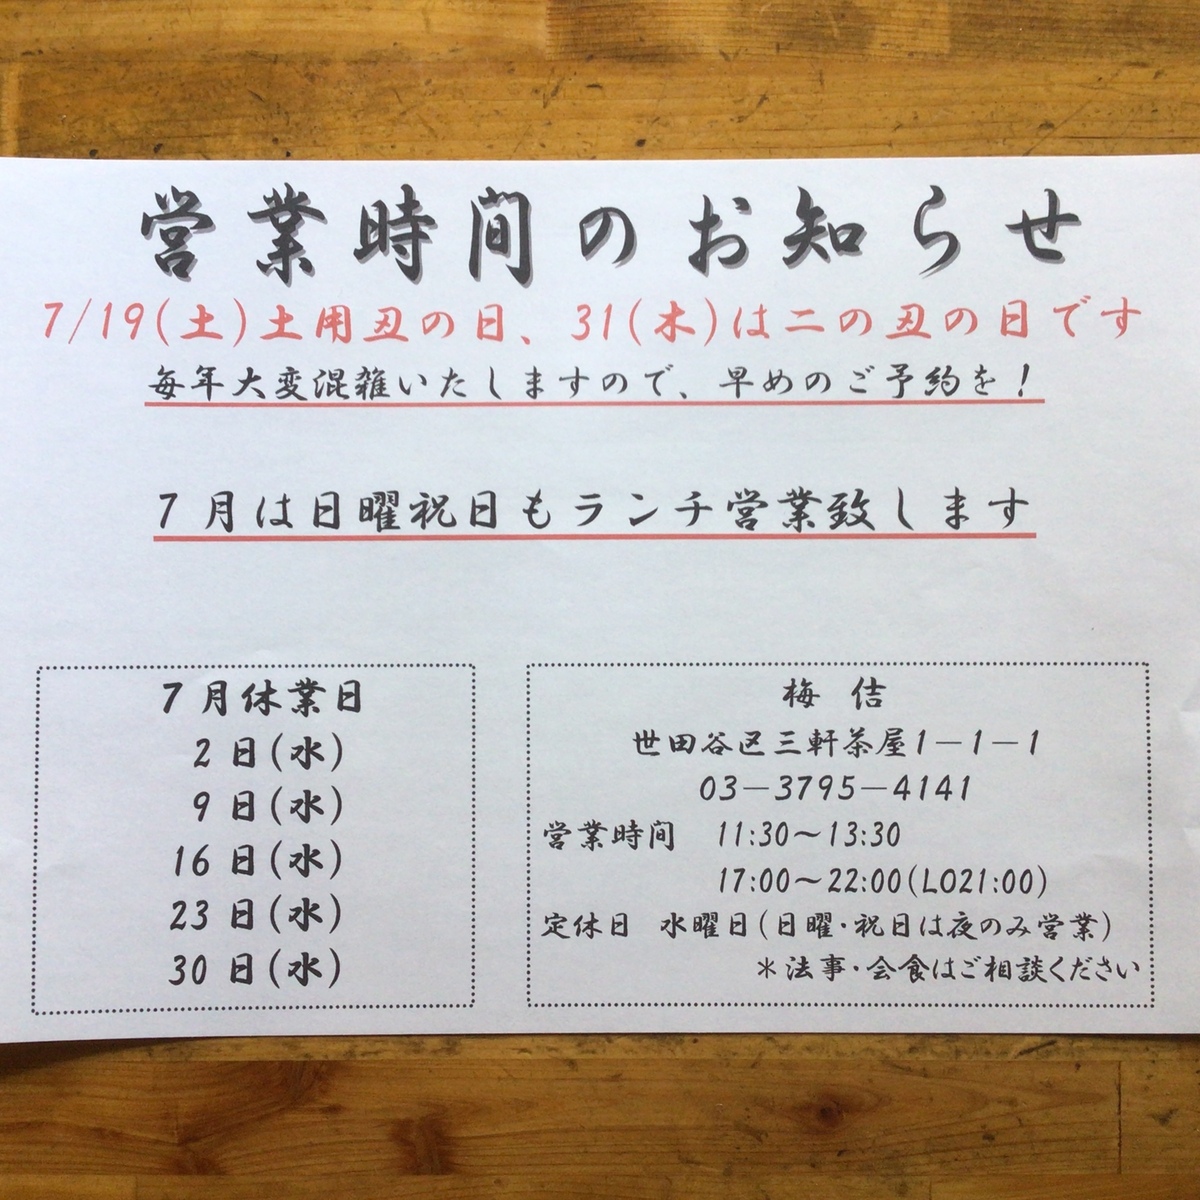 営業時間のお知らせ
7/19(土)土用丑の日、31(木)は二の丑の日です
毎年大変混雑いたしますので、早めのご予約を!
7月は日曜祝日もランチ営業致します
7月休業日
2日(水)
9日(水)
16日(水)
23日(水)
30日(水)
梅佶
世田谷区三軒茶屋1-1-1
03-3795-4141
営業時間 11:30~13:30
17:00~22:00(LO21:00)
定休日 水曜日(日曜・祝日は夜のみ営業)
*法事・会食はご相談ください